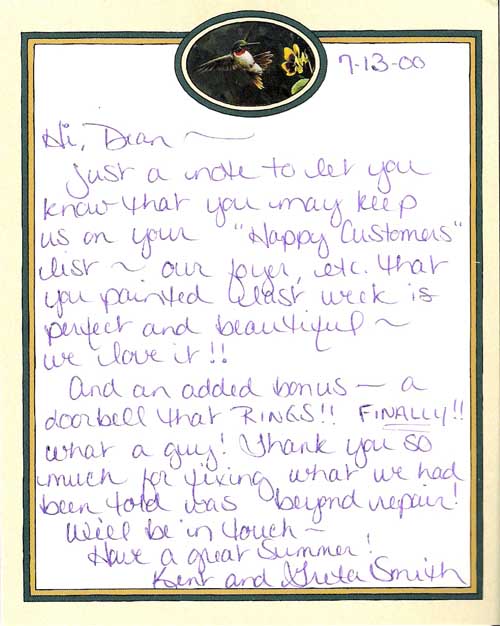 7-13-00
Hi, Dean ~
Just a note to let you
know that you may keep
us on your "Happy Customers"
list ~ our foyer, etc. that
you painted last week is
perfect and beautiful ~
we love it!!
And an added bonus – a
doorbell that RINGS!! FINALLY!!
what a guy! Thank you so
much for fixing what we had
been told was beyond repair!
Will be in touch ~
Have a great Summer!
Kent and Greta Smith